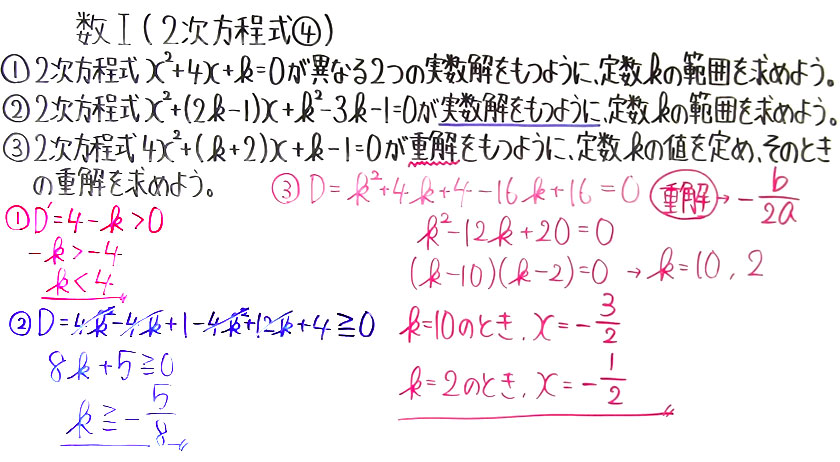 数I(2次方程式④)
①2次方程式x²+4x+k=0が異なる2つの実数解をもつように、定数kの範囲を求めよう。
②2次方程式x²+(2k-1)x+k²-3k-1=0が実数解をもつように、定数kの範囲を求めよう。
③2次方程式4x²+(k+2)x+k-1=0が重解をもつように、定数kの値を定め、そのとき
の重解を求めよう。
①D'=4-k>0
-k>-4
k<4
②D=4k²-4k+1-4k²+12k+4≧0
8k+5≧0
k≧-5/8
③D=k²+4k+4-16k+16=0 重解→-b/2a
k²-12k+20=0
(k-10)(k-2)=0 →k=10, 2
k=10のとき、x=-3/2
k=2のとき、x=-1/2